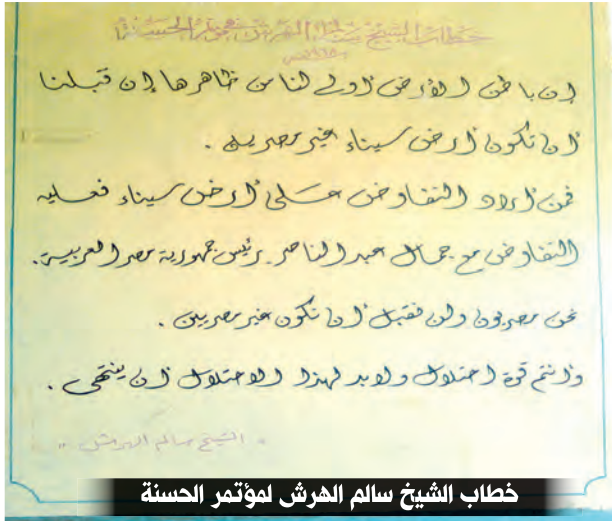 خطاب الشيخ سالم الهرش بمؤتمر الحسنة
إن باطن الأرض أولى لنا من ظاهرها إن قبلنا
أن تكون أرض سيناء غير مصرية .
فمن أراد التفاوض على أرض سيناء فعليه
التفاوض مع جمال عبد الناصر رئيس جمهورية مصر العربية .
نحن مصريون ولن نقبل أن نكون غير مصريين .
وأنتم قوة احتلال ولابد لهذا الاحتلال أن ينتهى .
" الشيخ سالم الهرش "
خطاب الشيخ سالم الهرش لمؤتمر الحسنة